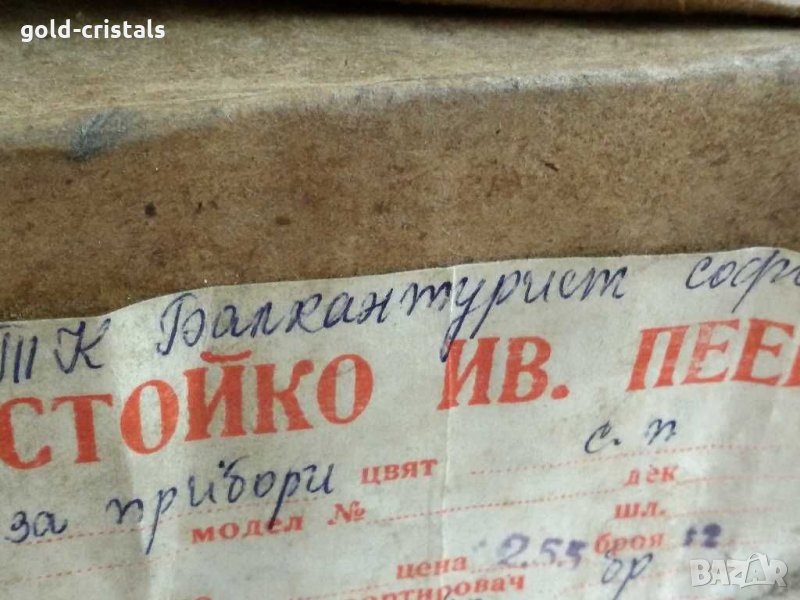 gold-cristals
ТК Балкантурист софи
СТОЙКО ИВ. ПЕЕВ
за прибори цвят с. п
модел № дек
шл.
цена 2.55 броя 12
сортировач бр
BAZAR